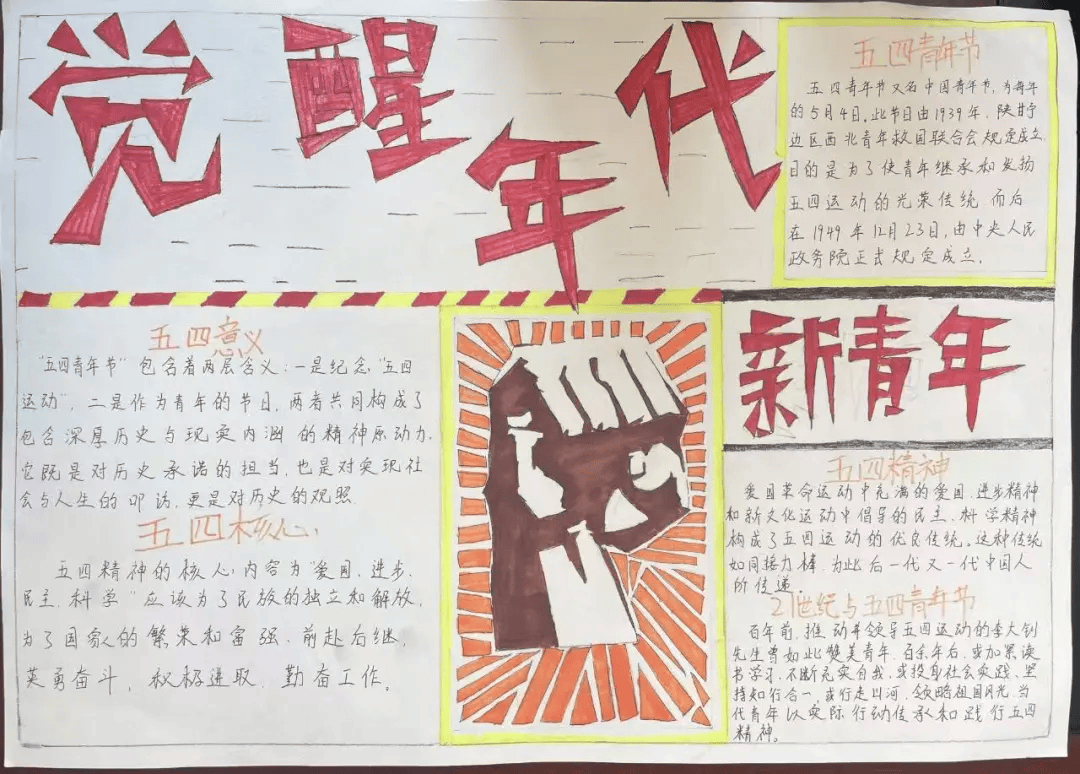 觉醒年代
五四青年节
五四青年节又名中国青年节,为每年
的5月4日。此节日由1939年,陕甘宁
边区西北青年救国联合会规定成立,
目的是为了使青年继承和发扬
五四运动的光荣传统.而后
在1949年12月23日,由中央人民
政务院正式规定成立。
五四意义
"五四青年节"包含着两层含义:一是纪念"五四
运动",二是作为青年的节日,两者共同构成了
包含深厚历史与现实内涵的精神原动力,
它既是对历史承诺的担当,也是对实现社
会与人生的叩访.更是对历史的观照.
五四核心
五四精神的核心内容为"爱国、进步、
民主、科学"应该为了民族的独立和解放,
为了国家的繁荣和富强、前赴后继,
英勇奋斗,积极进取.勤奋工作。
新青年
五四精神
爱国革命运动中充满的爱国、进步精神
和新文化运动中倡导的民主、科学精神
构成了五四运动的优良传统。这种传统
如同接力棒,为此后一代又一代中国人
所传递
21世纪与五四青年节
百年前,推动并领导五四运动的李大钊
先生曾如此赞美青年.百余年后,或加累读
书学习、不断充实自我,或投身社会实践、坚
持知行合一,或行走山河、领略祖国风光,当
代青年以实际行动传承和践行五四
精神。